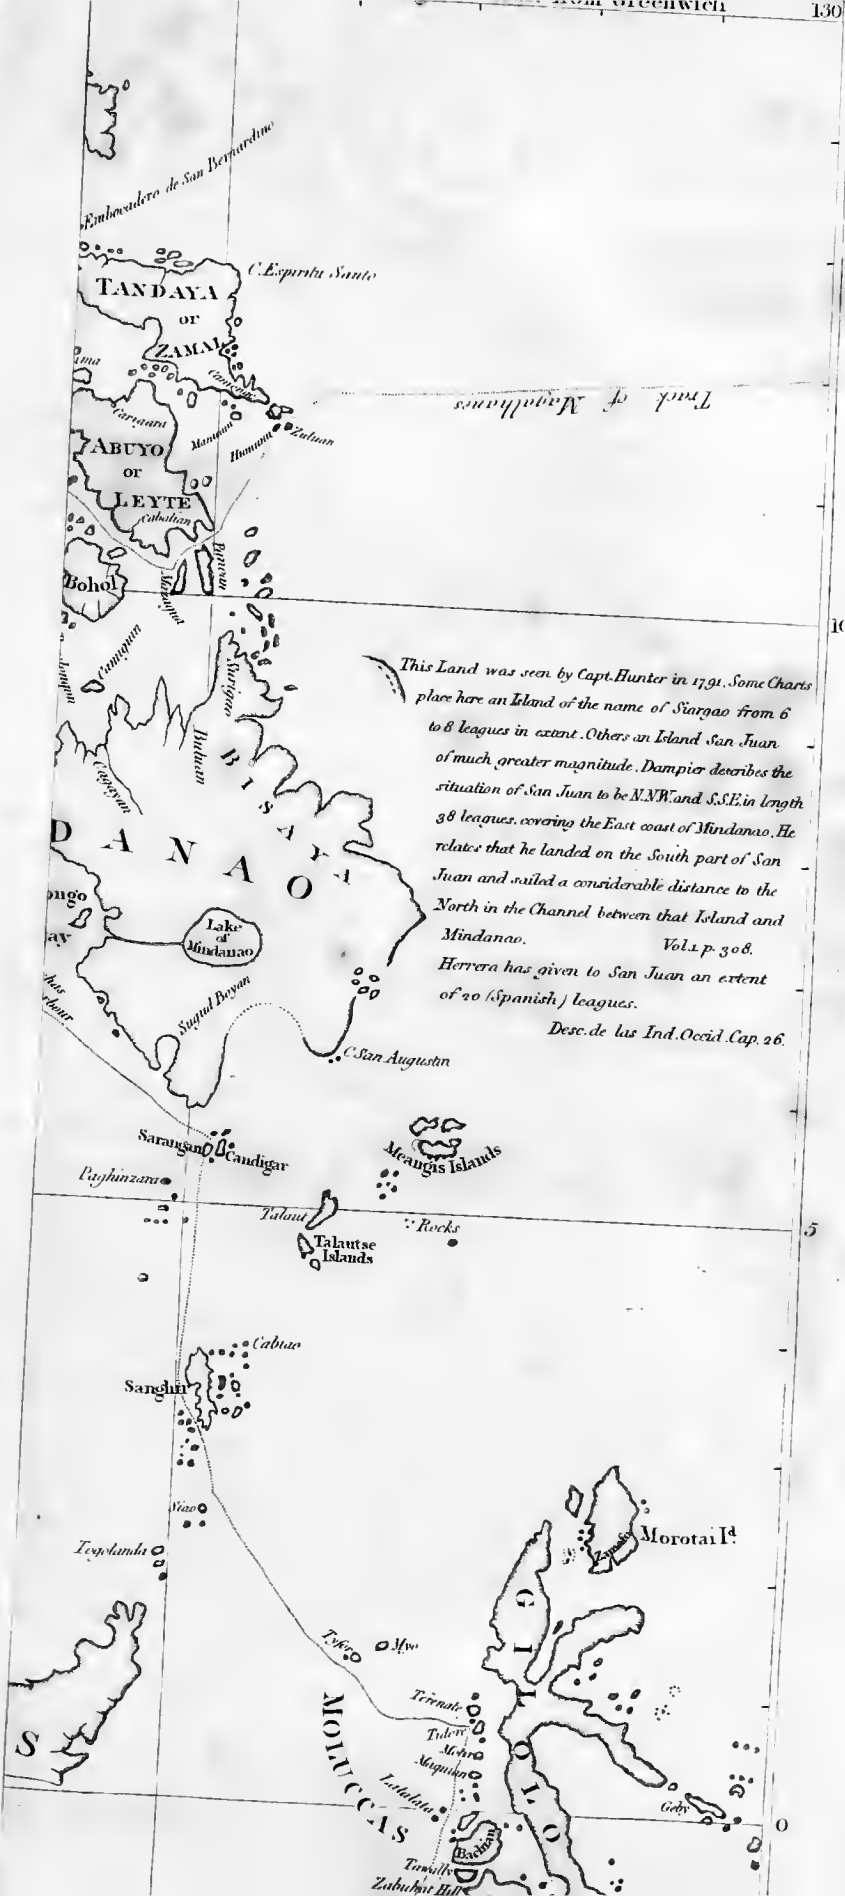 from Greenwich
130
Embocadero de San Bernardino
C. Espiritu Santo
TANDAYA
or
ZAMAL
Track of Magalhanes
Zuluan
Humunu
ABUYO
or
LEYTE
Cabalian
Panaon
Bohol
10
Surigao
Butuan
Cagayan
BISAYA
DANAO
This Land was seen by Capt. Hunter in 1791. Some Charts
place here an Island of the name of Siargao from 6
to 8 leagues in extent. Others an Island San Juan
of much greater magnitude. Dampier describes the
situation of San Juan to be N.NW. and S.S.E. in length
38 leagues. covering the East coast of Mindanao. He
relates that he landed on the South part of San
Juan and sailed a considerable distance to the
North in the Channel between that Island and
Mindanao. Vol. 1. p. 308.
Herrera has given to San Juan an extent
of 20 (Spanish) leagues.
Desc. de las Ind. Occid. Cap. 26.
ongo
ay
Lake
of
Mindanao
Sugud Boyan
C. San Augustin
Sarangan
Candigar
Meangis Islands
Paghinzara
Talaut
Talautse
Islands
Rocks
5
Cabiao
Sanghir
Siao
Togolanda
Morotai Id.
Zamafo
GILOLO
Tyfore
Myo
MOLUCCAS
Terenate
Tidore
Motir
Maquian
Lattalata
Geby
0
S
Bachian
Tawally
Zabubat Hill